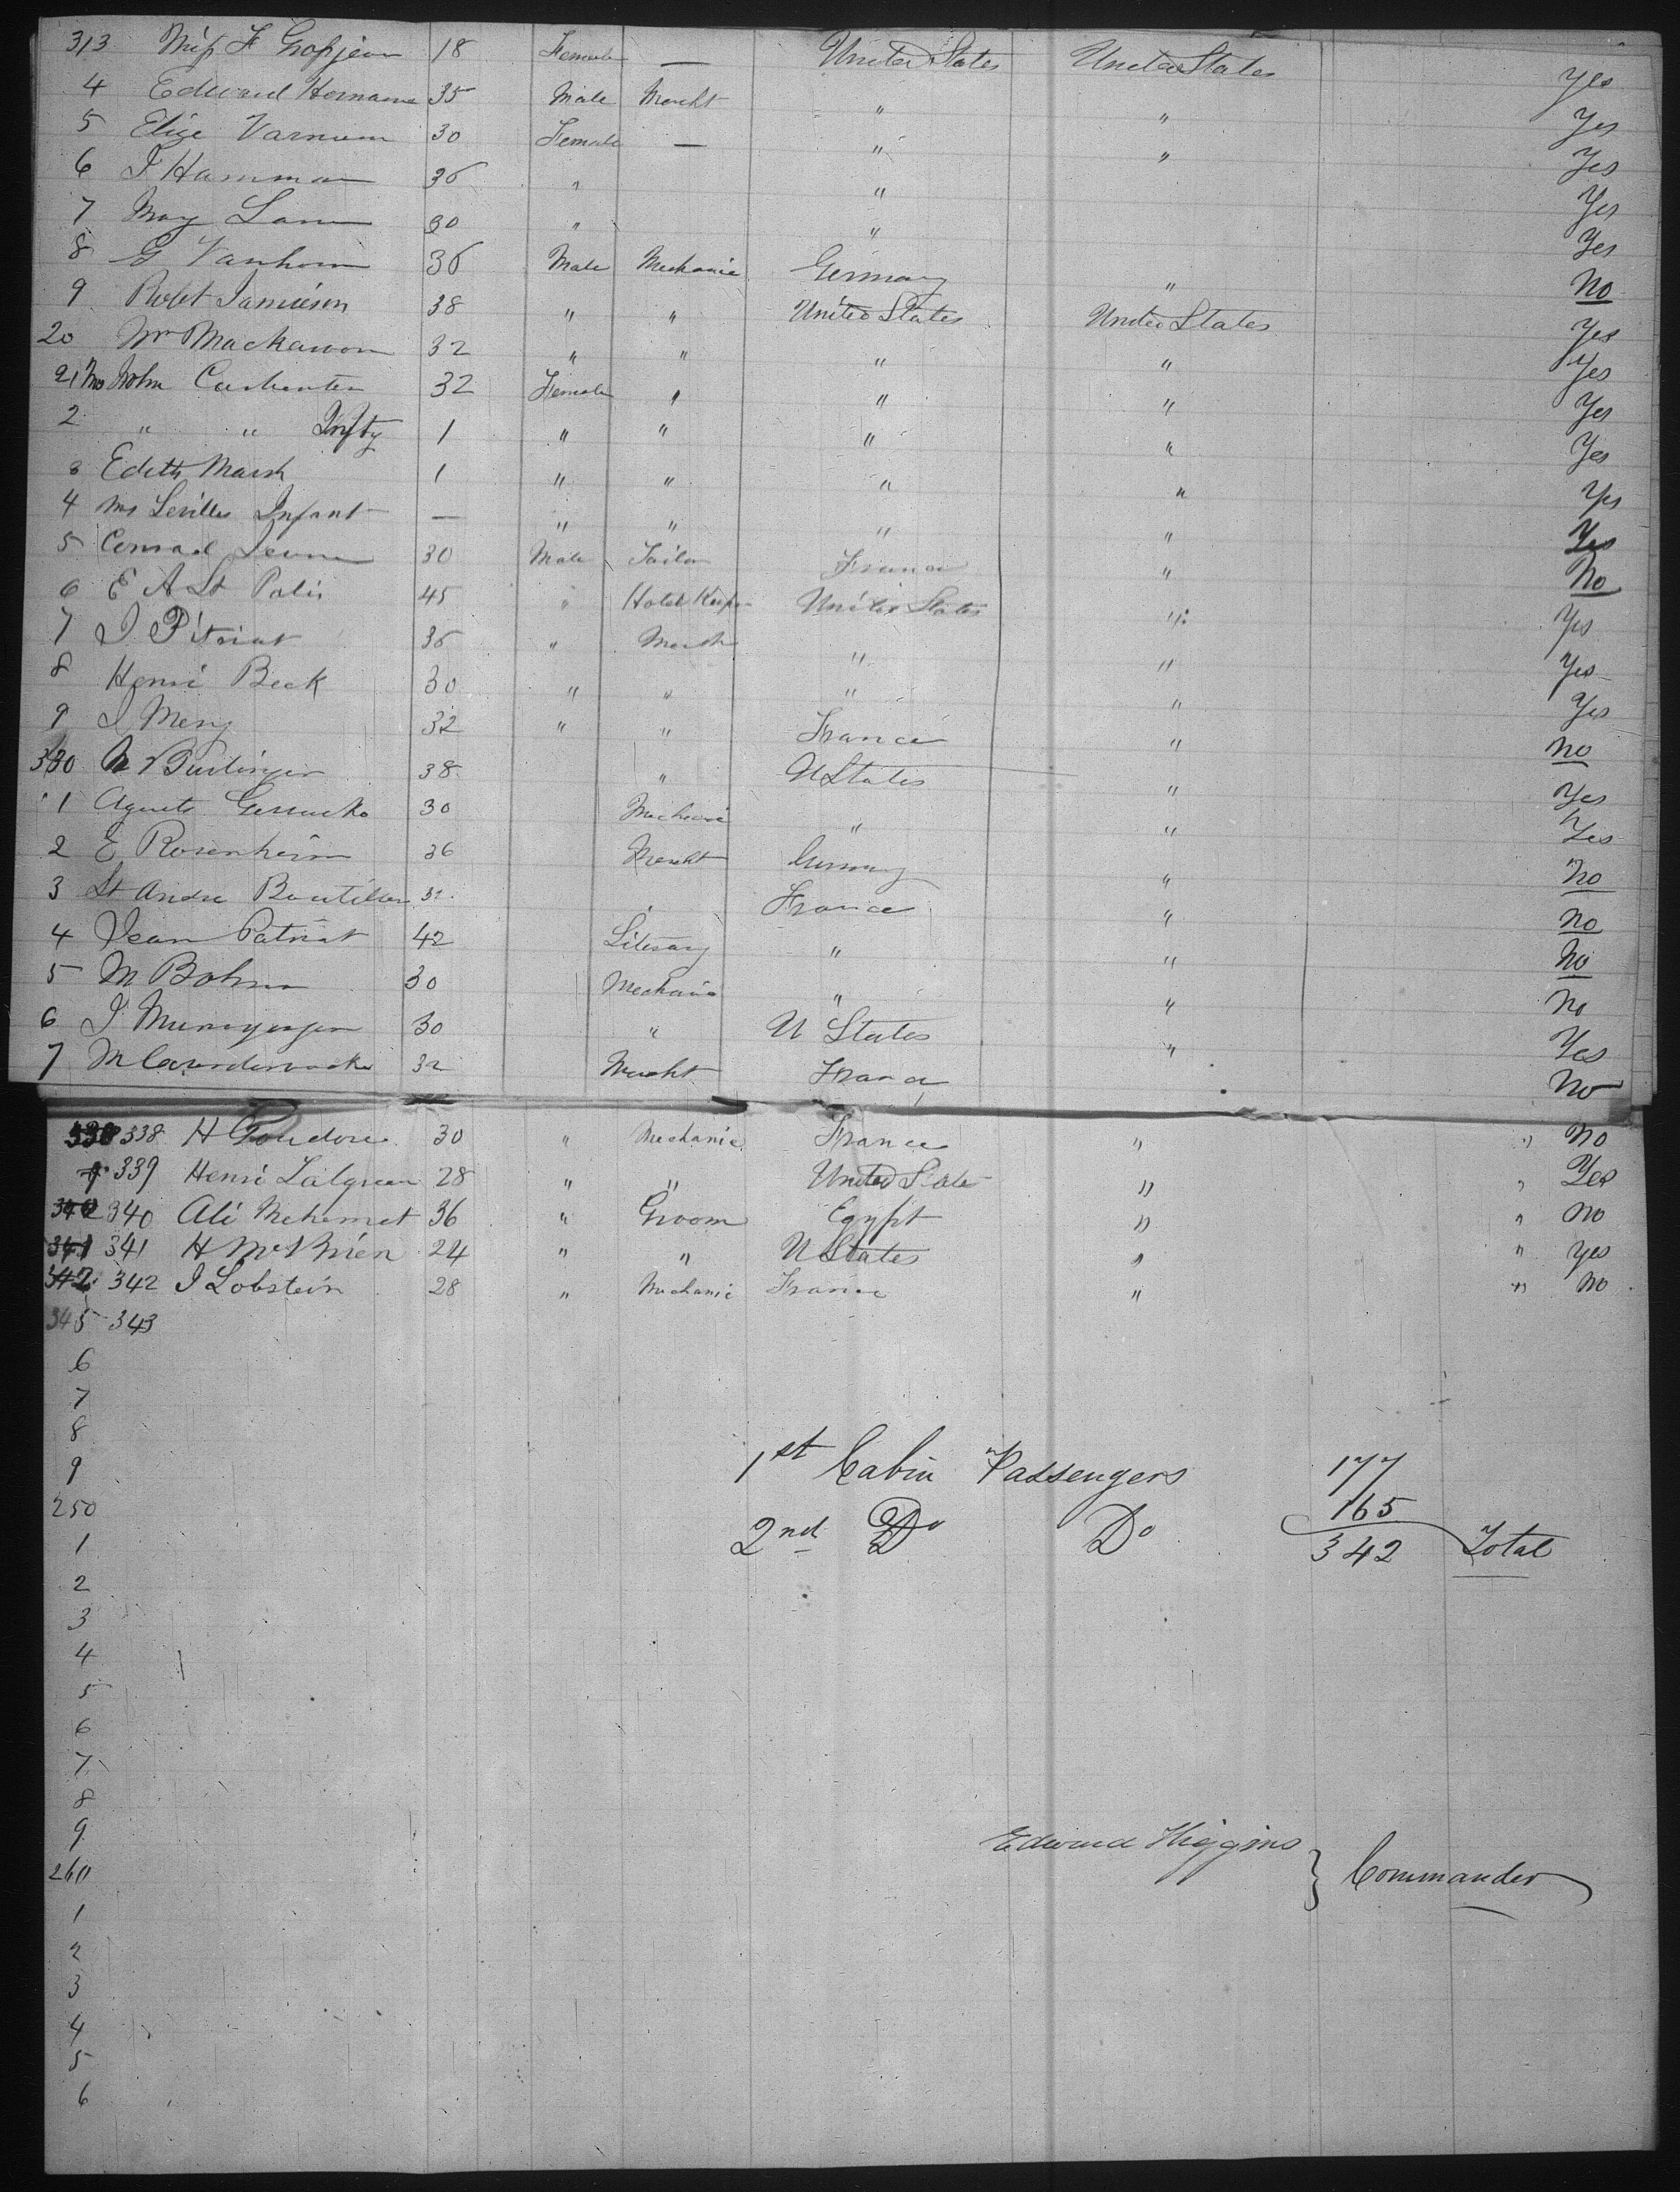 313 Miss F Grosjean 18 Female — United States United States Yes
4 Edward Hermann 35 Male Mercht " " Yes
5 Elige Varnum 30 Female — " " Yes
6 J Hamman 36 " " Yes
7 May Lann 30 " " Yes
8 G Vanhorn 36 Male Mechanic Germany " No
9 Robt Jamieson 38 " " United States United States Yes
20 Mr Mackawon 32 " " " " Yes
21 Mrs John Carpenter 32 Female " " " Yes
2 " " 1 " " " " Yes
3 Edith Marsh 1 " " " " Yes
4 Mrs Infant — " " " " Yes
5 Conrad 30 Male Tailor France " No
6 E A St 45 " Hotel Keeper United States " Yes
7 J 36 " Mercht " " Yes
8 Henri Beck 30 " " " " Yes
9 J Meny 32 " " France " No
330 38 " U States " Yes
1 30 Mechanic " " Yes
2 E Rosenheim 36 Mercht Germany " No
3 St Andre 32 " France " No
4 Jean Patriat 42 Literary " " No
5 M Bohm 30 Mechanic " " No
6 J 30 " U States " Yes
7 M 32 Mercht France No
338 338 H Goudore 30 " Mechanic France " " No
9 339 Henri Lalgreen 28 " " United State " " Yes
340 340 Ali Mehemet 36 " Groom Egypt " " No
341 341 H McBrien 24 " " U States " " Yes
342 342 J Lobstein 28 " Mechanic France " " No
345 343
6
7
8
9 1st Cabin Passengers 177
250 2nd Do Do 165
1 342 Total
2
3
4
5
6
7
8
9 Edward Higgins
260 } Commander
1
2
3
4
5
6